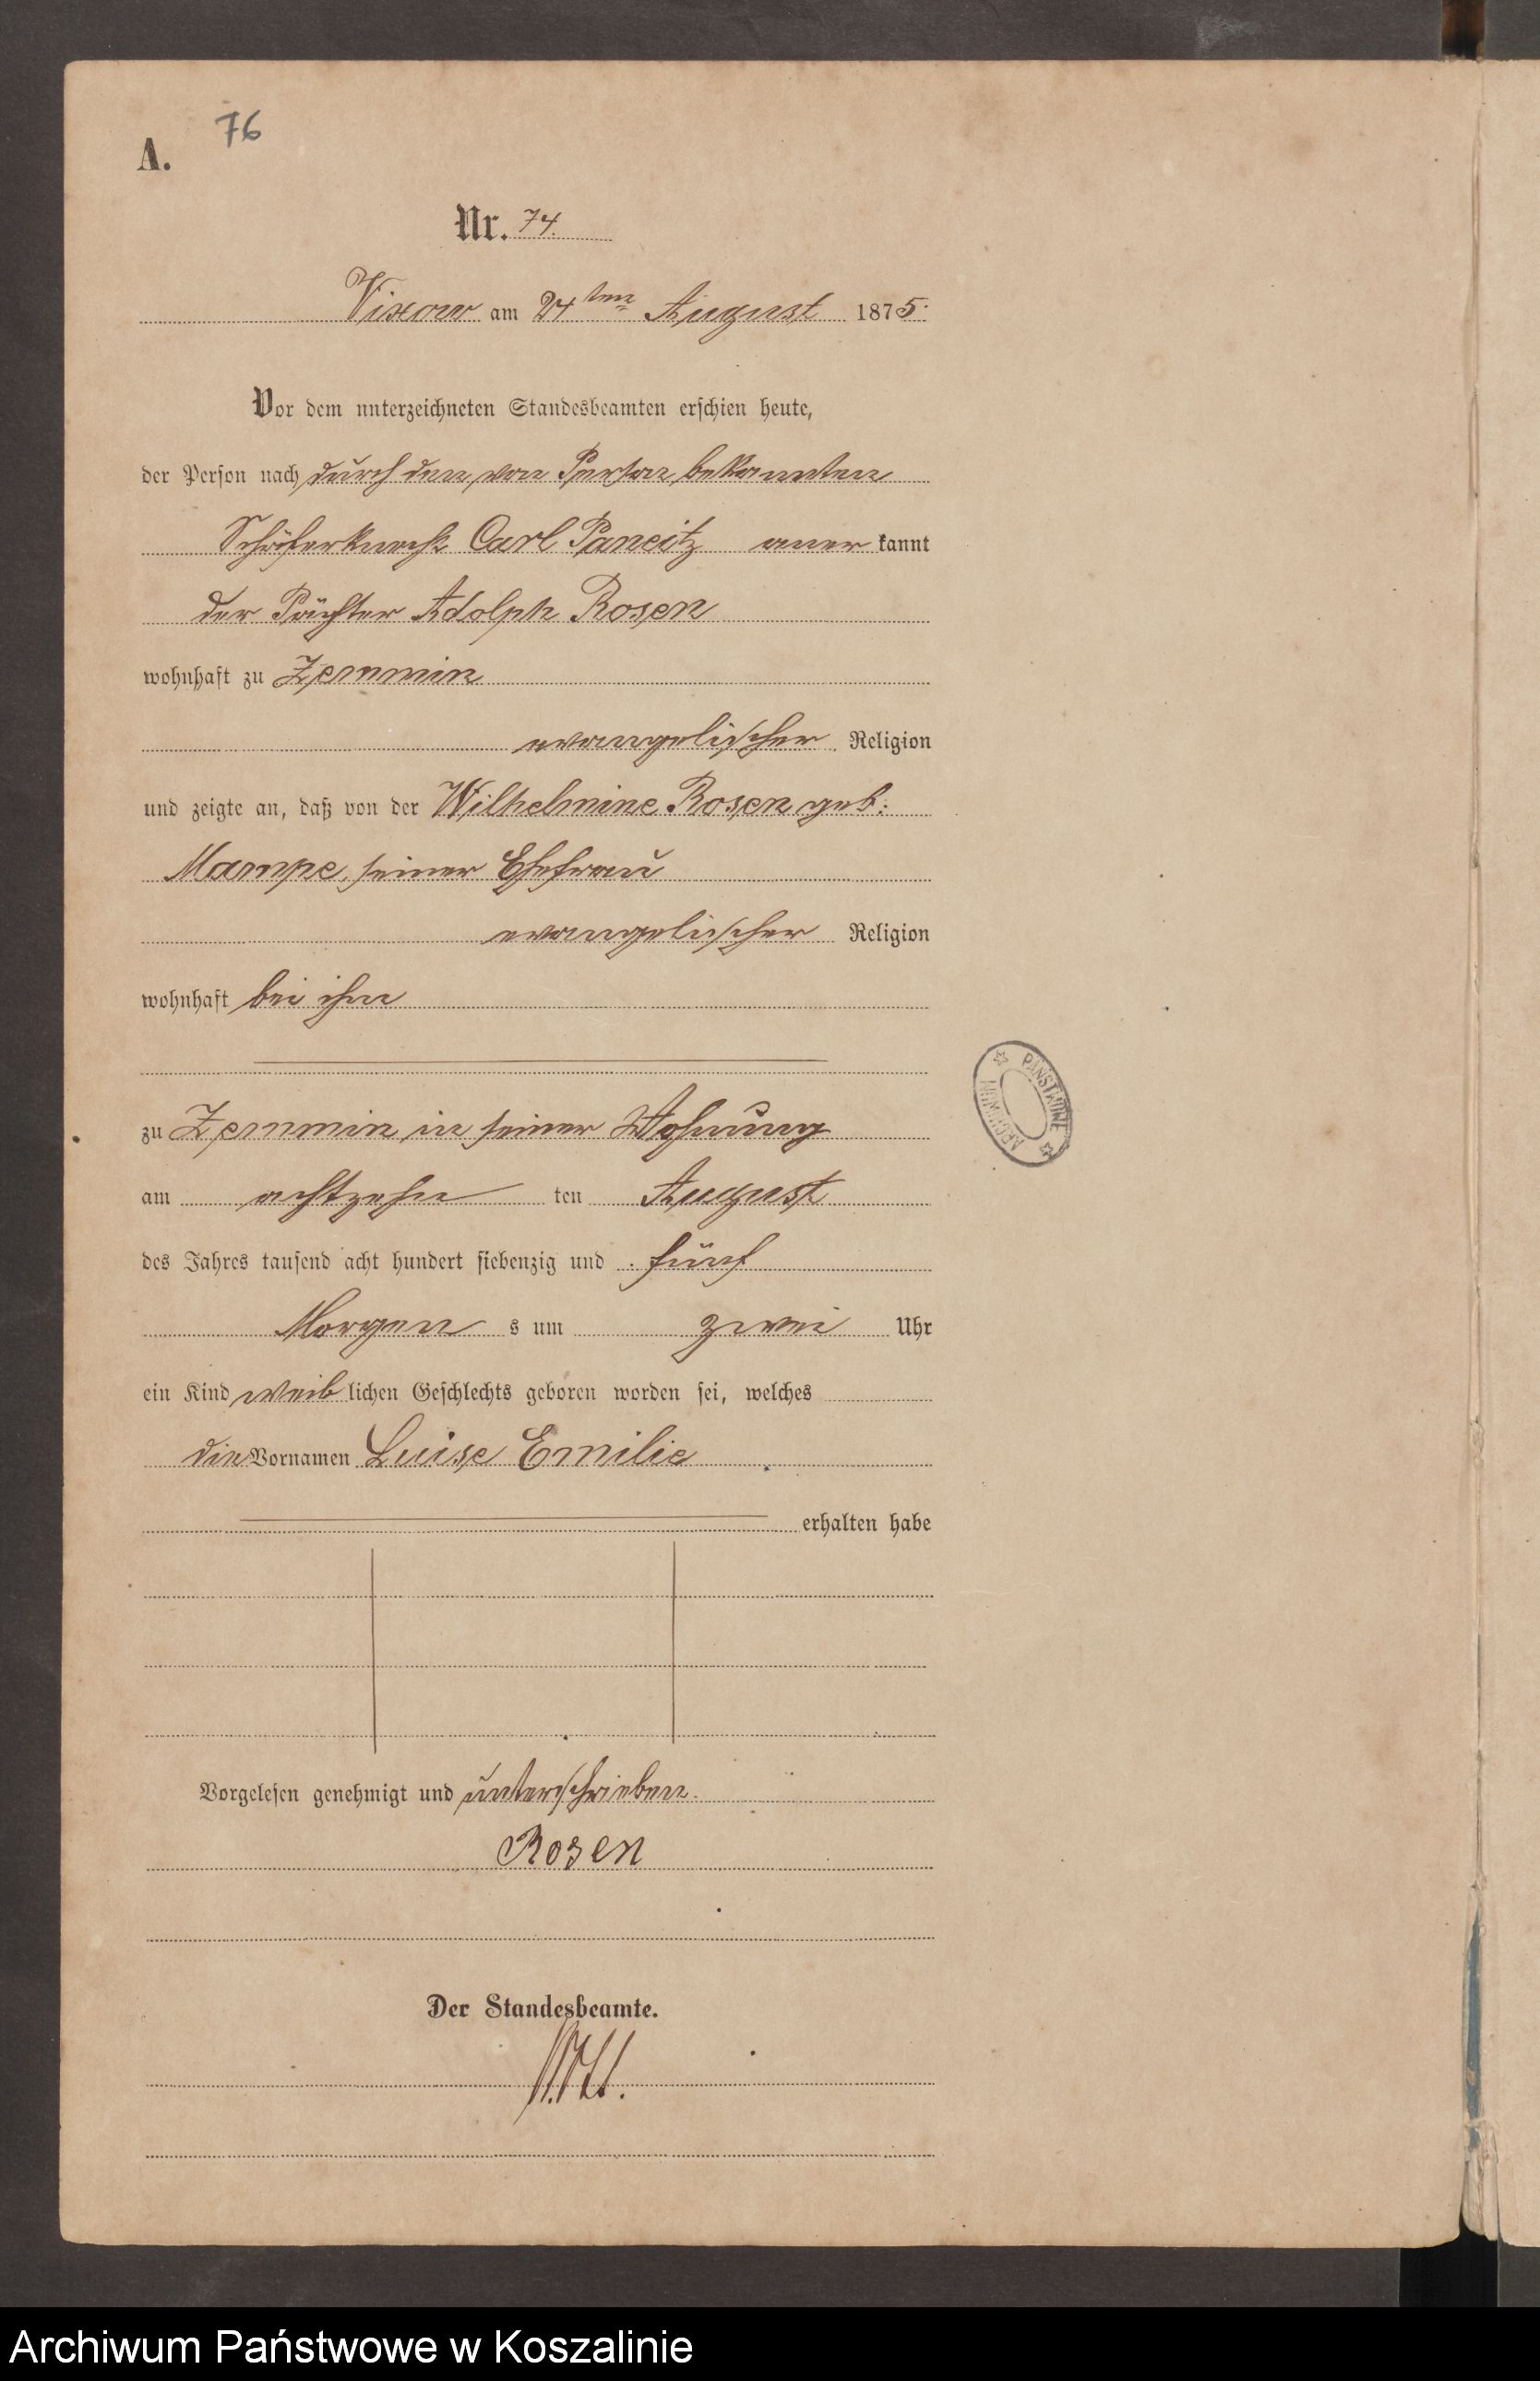 76
A.
Nr. 74.
Vixow am 24ten August 1875.
Vor dem unterzeichneten Standesbeamten erschien heute,
der Person nach durch den von Person bekannten
Schäferknecht Carl Paneitz aner kannt
der Pächter Adolph Rosen
wohnhaft zu Zemmin
evangelischer Religion
und zeigte an, daß von der Wilhelmine Rosen geb:
Mampe, seiner Ehefrau
evangelischer Religion
wohnhaft bei ihm
zu Zemmin in seiner Wohnung
am achtzehn ten August
des Jahres tausend acht hundert siebenzig und fünf
Morgen s um zwei Uhr
ein Kind weib lichen Geschlechts geboren worden sei, welches
die Vornamen Luise Emilie
erhalten habe
Vorgelesen genehmigt und unterschrieben.
Rosen
Der Standesbeamte.
ARCHIWUM PAŃSTWOWE
Archiwum Państwowe w Koszalinie